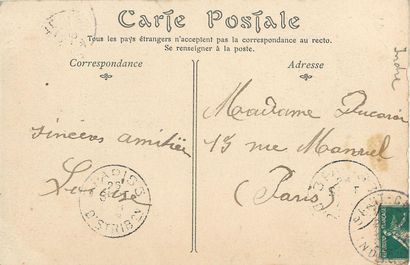 Carte Postale
Tous les pays étrangers n'acceptent pas la correspondance au recto.
Se renseigner à la poste.
Correspondance
Adresse
Indre
sincères amitiés
Louise
Madame
15 rue Manuel
(Paris)
PARIS
DISTRIBON